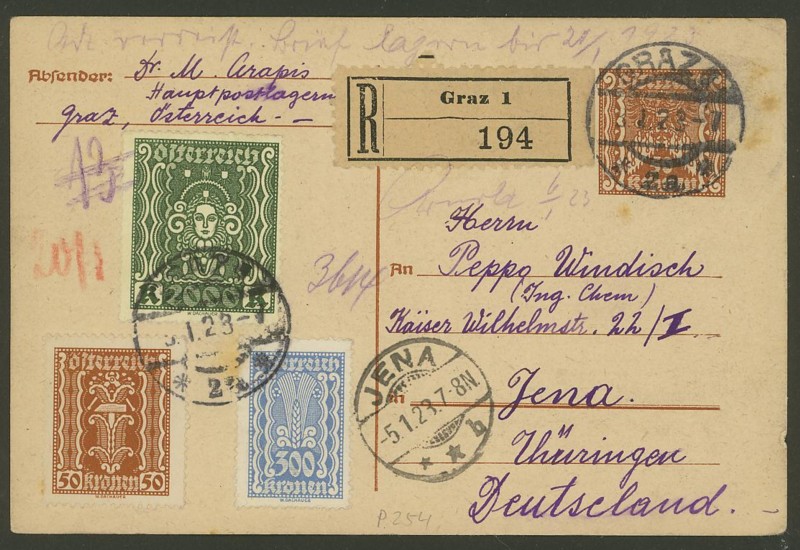 verreist. Brief lagern bis
Absender: Dr. M. Arapis
Hauptpostlagern
Graz, Österreich. —
R
Graz 1
194
GRAZ
2a
österreich
K 2000 K
1.23-7
* 2a *
20/1
österreich
50 kronen 50
österreich
300
kronen
1/23
Herrn
An Peppo Windisch
(Ing. Chem)
Kaiser Wilhelmstr. 22/I
In Jena.
Thüringen
Deutschland. —
JENA
-5.1.23.7-8N
* * b
P.254